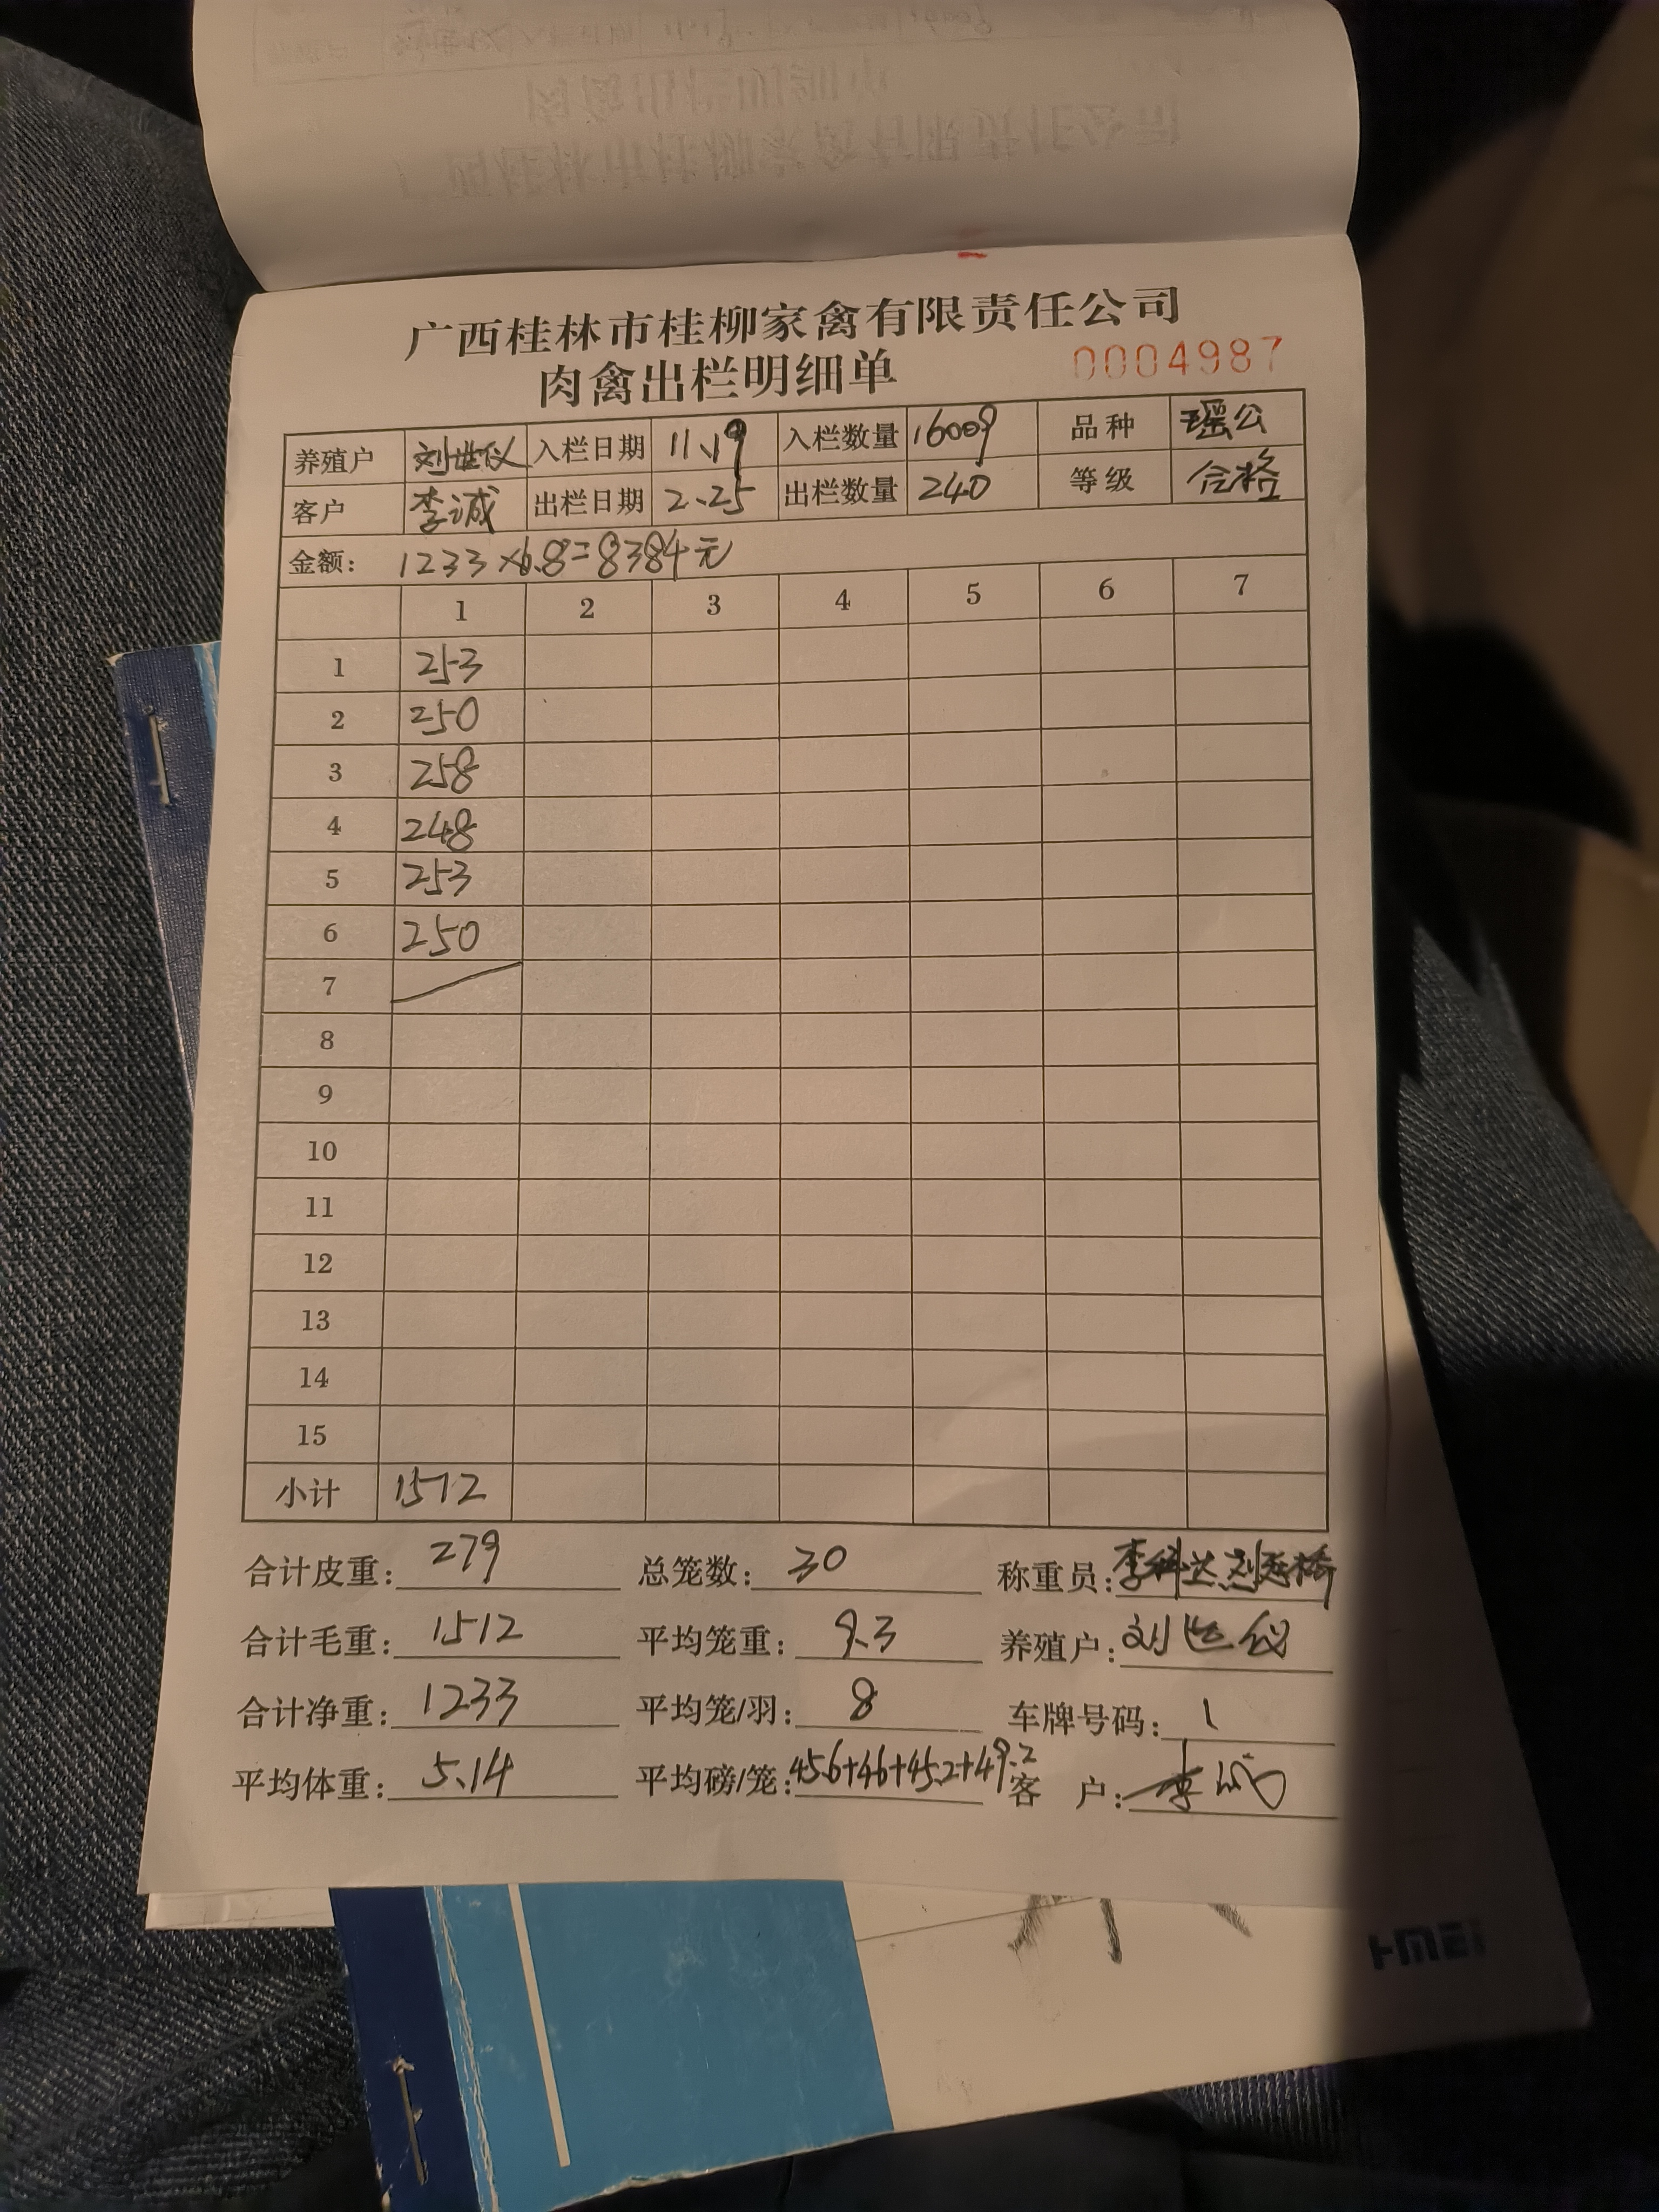 广西桂林市桂柳家禽有限责任公司
肉禽出栏明细单 0004987
养殖户 刘世仪 入栏日期 11.19 入栏数量 16009 品种 瑶公
客户 李诚 出栏日期 2.25 出栏数量 240 等级 合格
金额: 1233×6.8=8384元
1 2 3 4 5 6 7
1 253
2 250
3 258
4 248
5 253
6 250
7
8
9
10
11
12
13
14
15
小计 1512
合计皮重: 279 总笼数: 30 称重员: 李科达
合计毛重: 1512 平均笼重: 9.3 养殖户: 刘世仪
合计净重: 1233 平均笼/羽: 8 车牌号码: 1
平均体重: 5.14 平均磅/笼: 45.6+46+45.2+49.2 客 户: 李诚